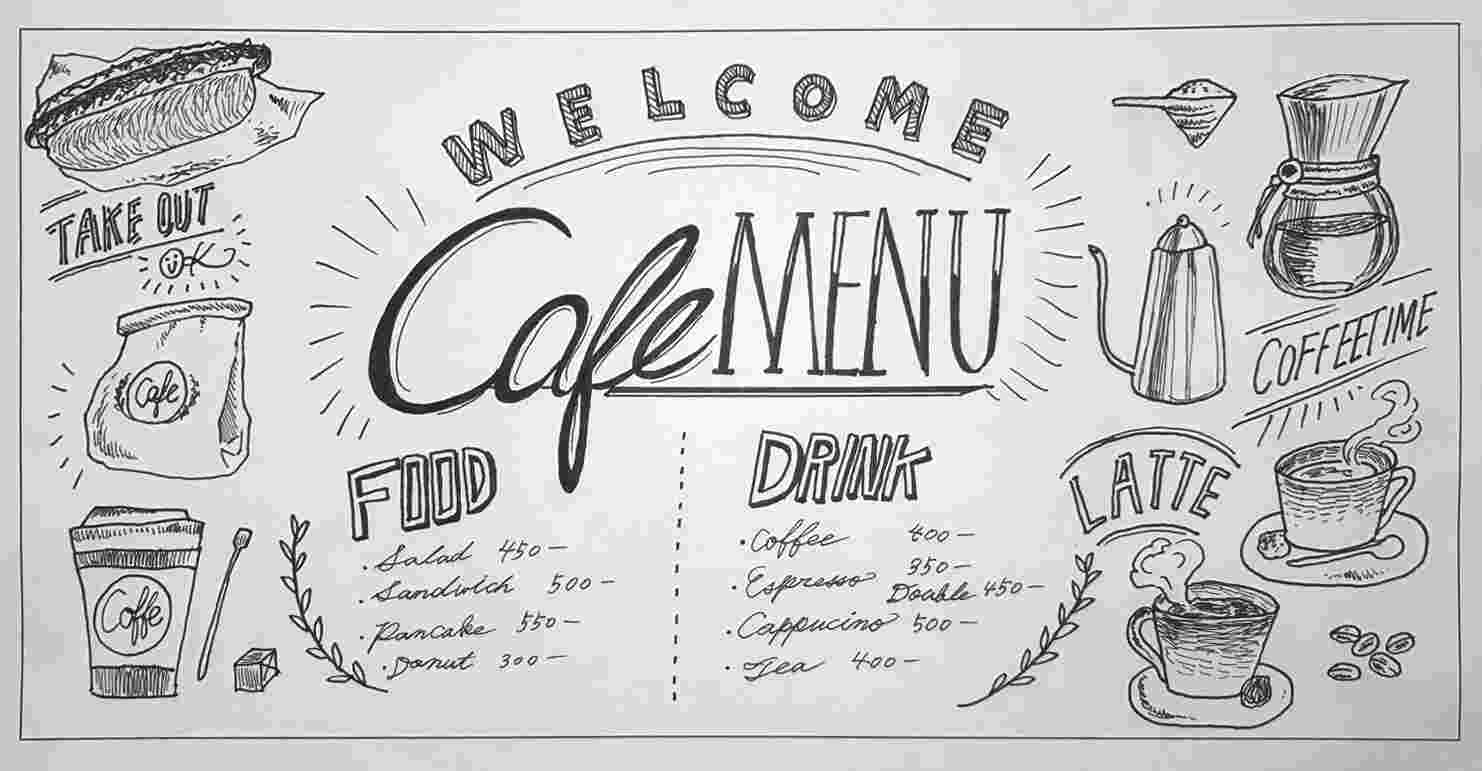 WELCOME
Cafe MENU
TAKE OUT
OK
Cafe
Coffe
FOOD
· Salad 450—
· Sandwich 500—
· Pancake 550—
· Donut 300—
DRINK
· Coffee 400—
· Espresso 350—
Double 450—
· Cappucino 500—
· Tea 400—
COFFEETIME
LATTE